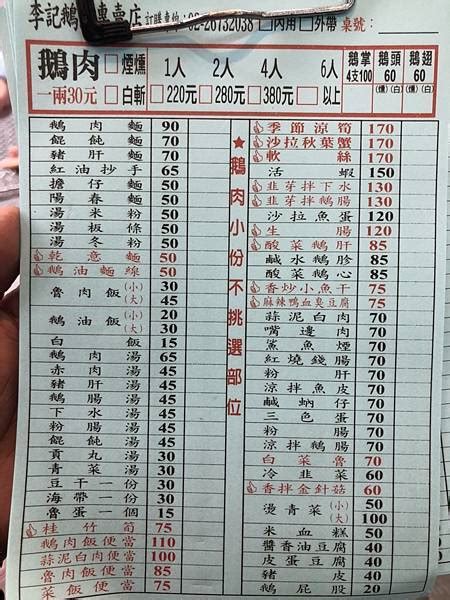 李記鵝肉專賣店 訂購專線:08-26732038 □內用□外帶 桌號:
鵝肉 □煙燻 1人 2人 4人 6人 鵝掌 鵝頭 鵝翅
4支100 60 60
一兩30元 □白斬 □220元□280元□380元□以上 (燻)(白) (燻)(白)
鵝肉麵 90
餛飩麵 70
豬肝麵 70
紅油抄手 65
擔仔麵 50
陽春麵 50
湯米粉 50
湯板條 50
湯冬粉 50
乾意麵 50
鵝油麵線 50
魯肉飯 (小) 30
(大) 45
鵝油飯 (小) 20
(大) 30
白飯 15
鵝肉湯 65
赤肉湯 45
豬肝湯 45
鵝腸湯 45
下水湯 45
粉腸湯 45
餛飩湯 45
貢丸湯 30
青菜湯 30
豆干一份 30
海帶一份 30
魯蛋一個 15
桂竹筍 75
鵝肉飯便當 110
蒜泥白肉便當 100
魯肉飯便當 85
菜飯便當 75
★鵝肉小份不挑選部位
季節涼筍 170
沙拉秋葉蟹 170
軟絲 170
活蝦 150
韭芽拌下水 130
韭芽拌鵝腸 130
沙拉魚蛋 120
生腸 120
酸菜鵝肝 85
鹹水鵝胗 85
酸菜鵝心 85
香炒小魚干 75
麻辣鴨血臭豆腐 75
蒜泥白肉 70
嘴邊肉 70
鯊魚煙 70
紅燒錢腸 70
粉肝 70
涼拌魚皮 70
鹹蚋仔 70
三色蛋 70
粉腸 70
涼拌鵝腸 70
白菜魯 70
冷韭菜 60
香拌金針菇 60
燙青菜 (小) 50
(大) 100
米血糕 50
醬香油豆腐 40
皮蛋豆腐 40
豬皮 40
鵝屁股 20